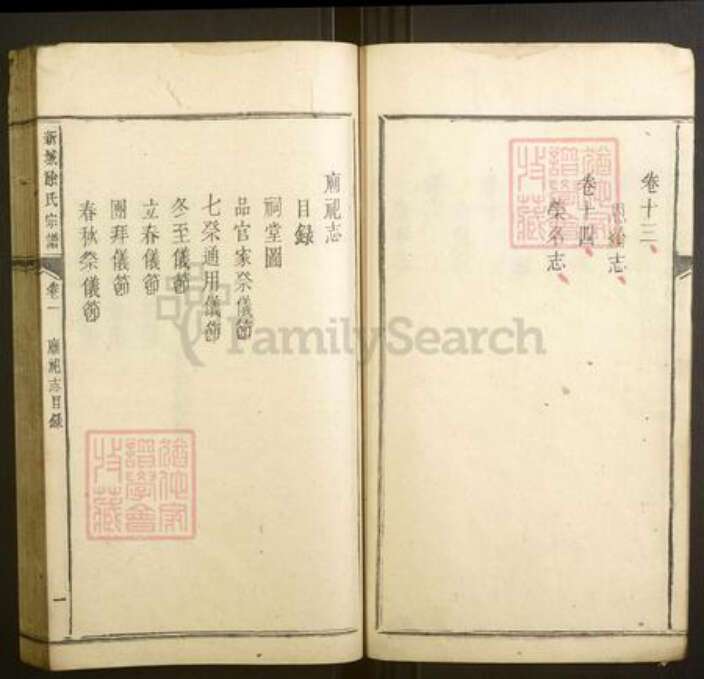 卷十三
恩綸志
卷十四
榮名志
廟祀志
目錄
祠堂圖
品官家祭儀節
七祭通用儀節
冬至儀節
立春儀節
團拜儀節
春秋祭儀節
新城徐氏宗譜
卷一
廟祀志目錄
一
譜學會
收藏
FamilySearch